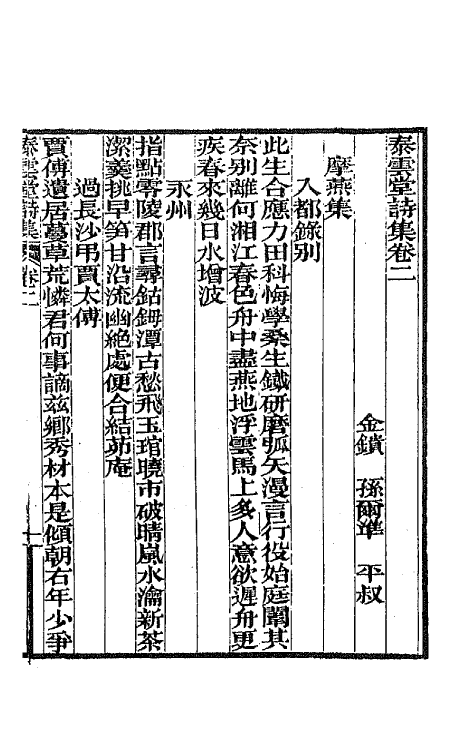 泰雲堂詩集卷二
金鎖　孫爾準　平叔
摩燕集
入都錄別
此生合應力田科悔學桑生鐵研磨弧矢漫言行役始庭闈其
奈別離何湘江春色舟中盡燕地浮雲馬上多人意欲遲舟更
疾春來幾日水增波
永州
指點零陵郡言尋鈷鉧潭古愁飛玉琯曉市破晴嵐水瀹新茶
潔羹挑早笋甘沿流幽絕處便合結茆庵
過長沙弔賈太傅
賈傅遺居蔓草荒憐君何事謫茲鄉秀材本是傾朝右年少爭
泰雲堂詩集　卷二　一